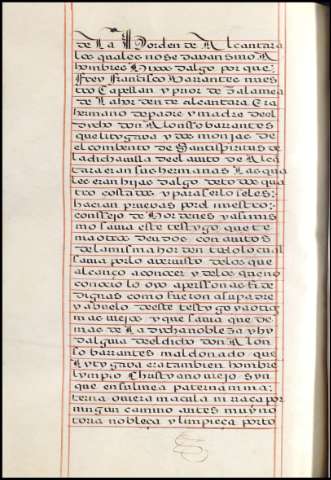 de La Horden de Alcantara
Los quales no se davan sino A
hombres Hijosdalgo por que
Frey Francisco Barantes nues
tro Capellan y prior de Zalamea
de La horden de alcantara Era
hermano de padre y madre del
dicho don Alonsso barantes
que litygava y dos monjas de
el combento de Santispiritus de
la dicha villa del avito de Alca
tara eran sus hermanas Las qua
les eran hijas dalgo de todos qua
tro costados y para serlo se les
hacian pruevas por el nuestro
conssejo de Hordenes y assimis
mo savia este testygo que te
nia otros deudos con avitos
de la misma horden todo lo cual
savia por lo aver visto de los que
alcanço a conocer y de los que no
conocio lo oyo a perssonas fi de
dignas como fueron a su padre
y abuelo de este testygo y a otros
mas viejos y que savia que de
mas de La dicha nobleza y hy
dalguia del dicho don Alon
so barantes maldonado que
Lytygava era tambien hombre
lympio Christyano viejo syn
que en su linea paterna ni ma
terna oviera macula ni raça por
ningun camino antes muy no
toria nobleça y limpieça por to